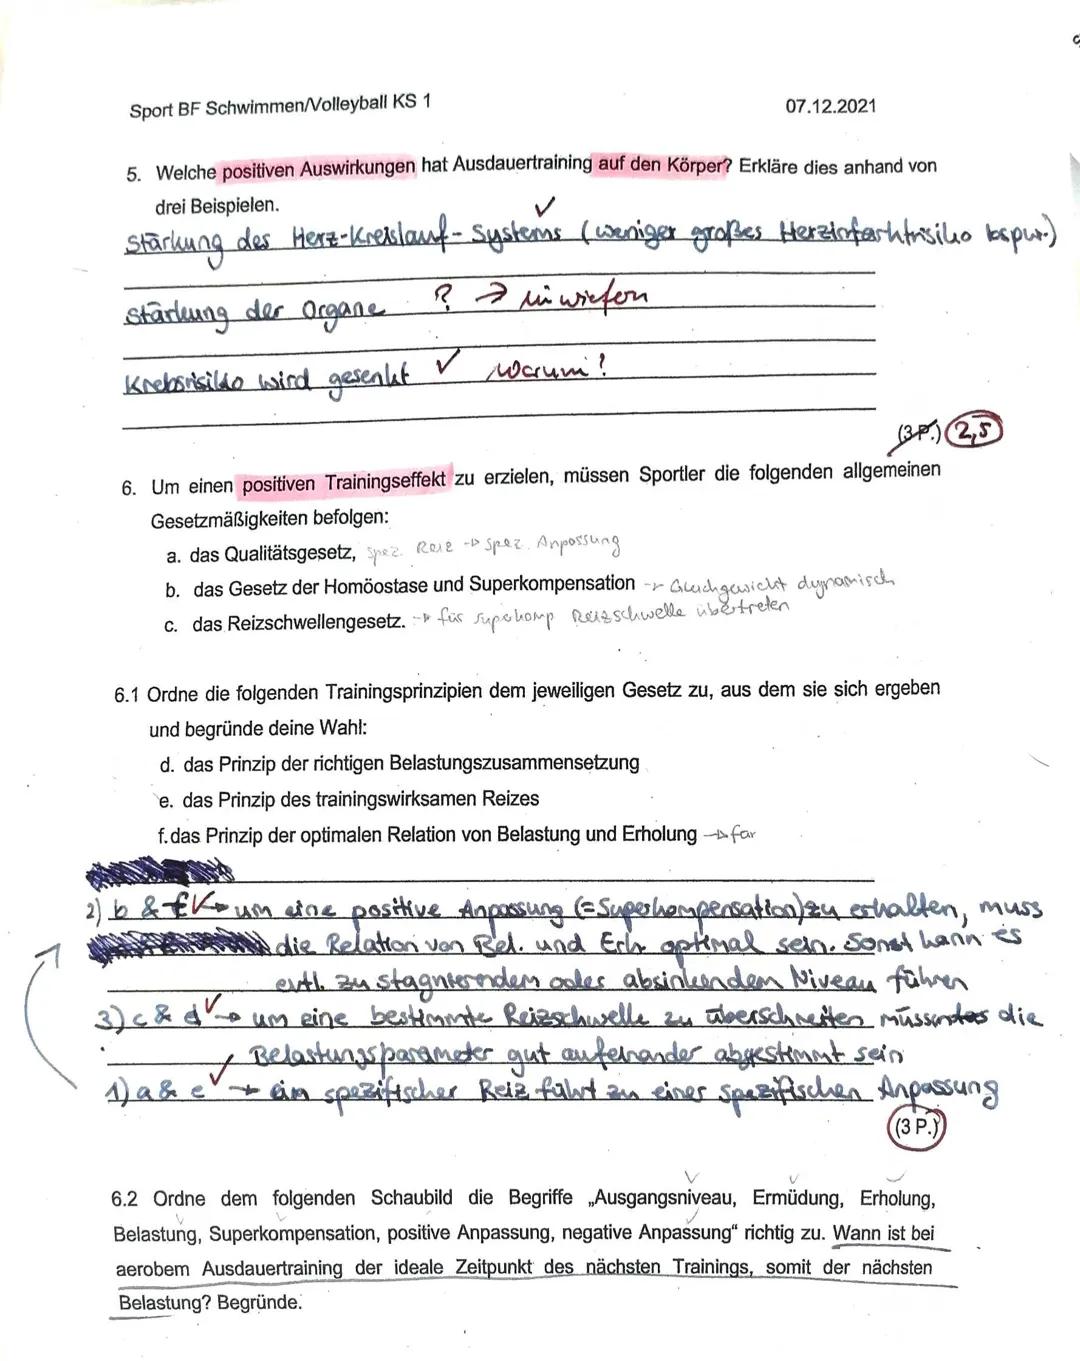 Sport BF Schwimmen/Volleyball KS 1
07.12.2021
5. Welche positiven Auswirkungen hat Ausdauertraining auf den Körper? Erkläre dies anhand von
drei Beispielen.
✓
Stärkung des Herz-Kreislauf-Systems (weniger großes Herzinfarktrisiko bspw.)
Stärkung der Organe ? → inwiefern
Krebsrisiko wird gesenkt ✓ warum?
(3 P.) 2,5
6. Um einen positiven Trainingseffekt zu erzielen, müssen Sportler die folgenden allgemeinen
Gesetzmäßigkeiten befolgen:
a. das Qualitätsgesetz, spez. Reiz → spez. Anpassung
b. das Gesetz der Homöostase und Superkompensation → Gleichgewicht dynamisch
c. das Reizschwellengesetz. → für superkomp Reizschwelle übertreten
6.1 Ordne die folgenden Trainingsprinzipien dem jeweiligen Gesetz zu, aus dem sie sich ergeben
und begründe deine Wahl:
d. das Prinzip der richtigen Belastungszusammensetzung
e. das Prinzip des trainingswirksamen Reizes
f. das Prinzip der optimalen Relation von Belastung und Erholung → für
2) b & f ✓→ um eine positive Anpassung (=Superkompensation) zu erhalten, muss
die Relation von Bel. und Erh. optimal sein. Sonst kann es
evtl. zu stagnierendem oder absinkendem Niveau führen
3) c & d ✓→ um eine bestimmte Reizschwelle zu überschreiten müssen die
Belastungsparameter gut aufeinander abgestimmt sein
1) a & e ✓→ ein spezifischer Reiz führt zu einer spezifischen Anpassung
(3 P.)
6.2 Ordne dem folgenden Schaubild die Begriffe „Ausgangsniveau, Ermüdung, Erholung,
Belastung, Superkompensation, positive Anpassung, negative Anpassung“ richtig zu. Wann ist bei
aerobem Ausdauertraining der ideale Zeitpunkt des nächsten Trainings, somit der nächsten
Belastung? Begründe.